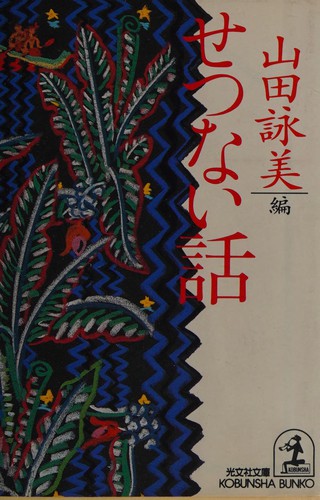 山田詠美
編
せつない話
光文社文庫
KOBUNSHA BUNKO
KOBUNSHA